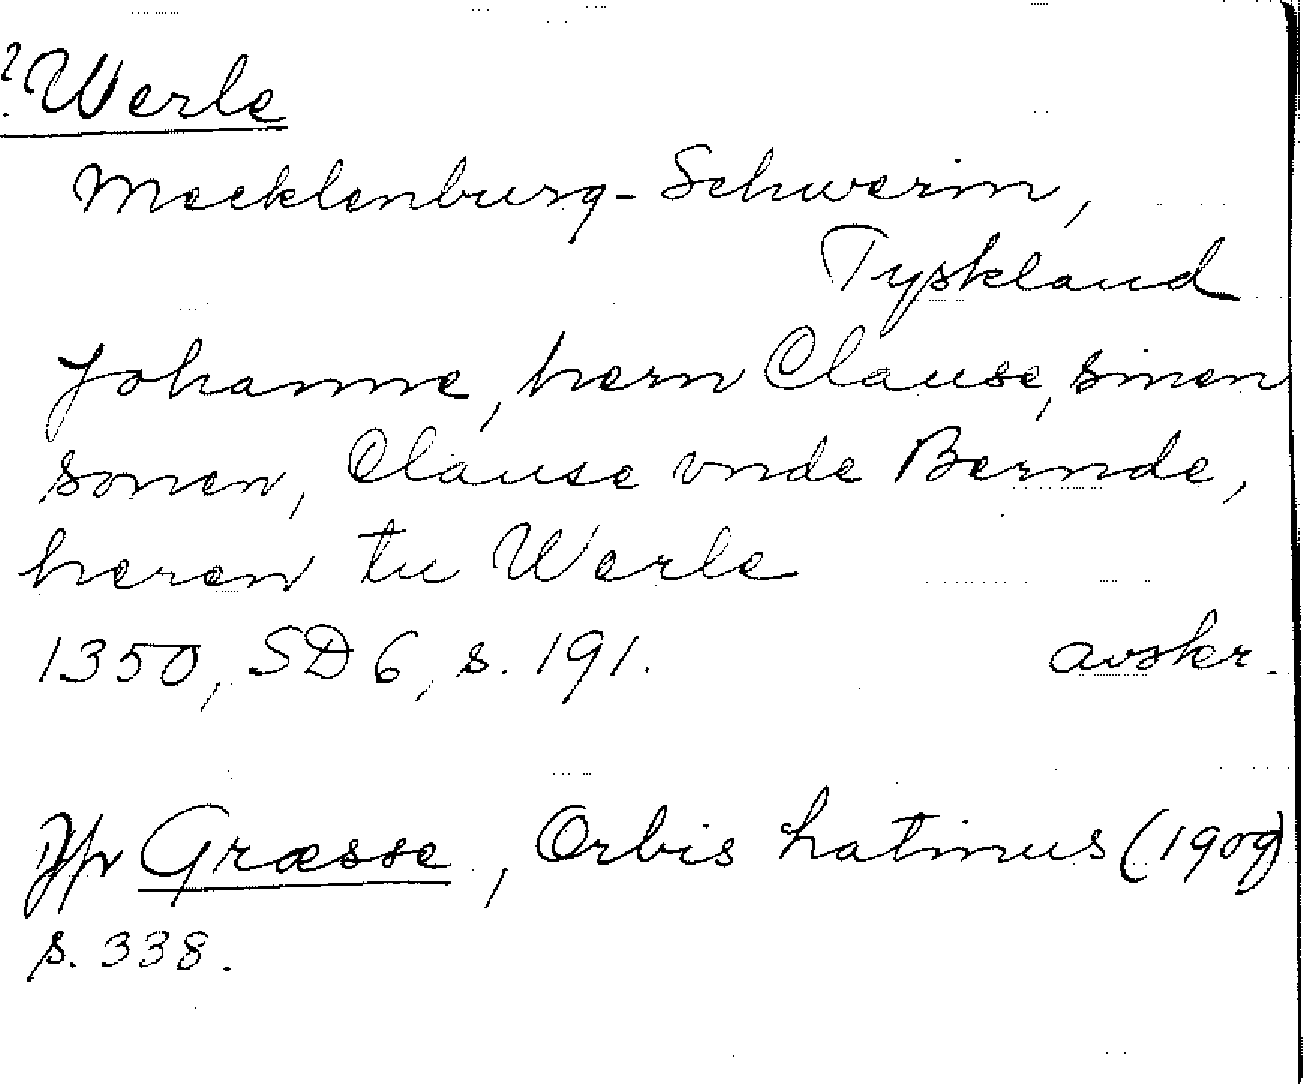 ? Werle
Mecklenburg-Schwerin,
Tyskland
Johanne, hern Clause, sinen
sonen, Clause vnde Bernde,
heren tu Werle
1350, SD 6, s. 191. avskr.
Jfr Græsse, Orbis Latinus (1909)
s. 338.